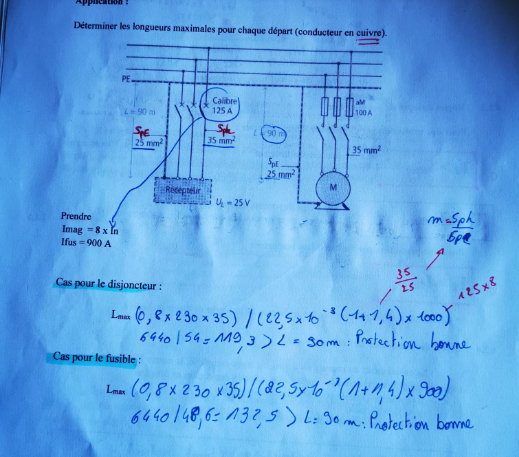 Application :
Déterminer les longueurs maximales pour chaque départ (conducteur en cuivre).
PE
L = 90 m
Calibre
125 A
SPE
25 mm²
Sph
35 mm²
Récepteur
UL = 25 V
L = 90 m
SPE
25 mm²
aM
100 A
35 mm²
M
Prendre
Imag = 8 x In
Ifus = 900 A
m = Sph
Spe
35
25
125 x 8
Cas pour le disjoncteur :
Lmax (0,8 x 230 x 35) / (22,5 x 10⁻³ (1+1,4) x 1000)
6440 / 54 = 119,3 > L = 90 m : Protection bonne
Cas pour le fusible :
Lmax (0,8 x 230 x 35) / (22,5 x 10⁻³ (1+1,4) x 900)
6440 / 48,6 = 132,5 > L = 90 m : Protection bonne